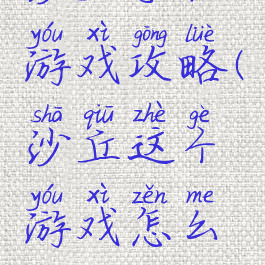 yóu xì gōng lüè
游戏攻略(
shā qiū zhè gè
沙丘这个
yóu xì zěn me
游戏怎么